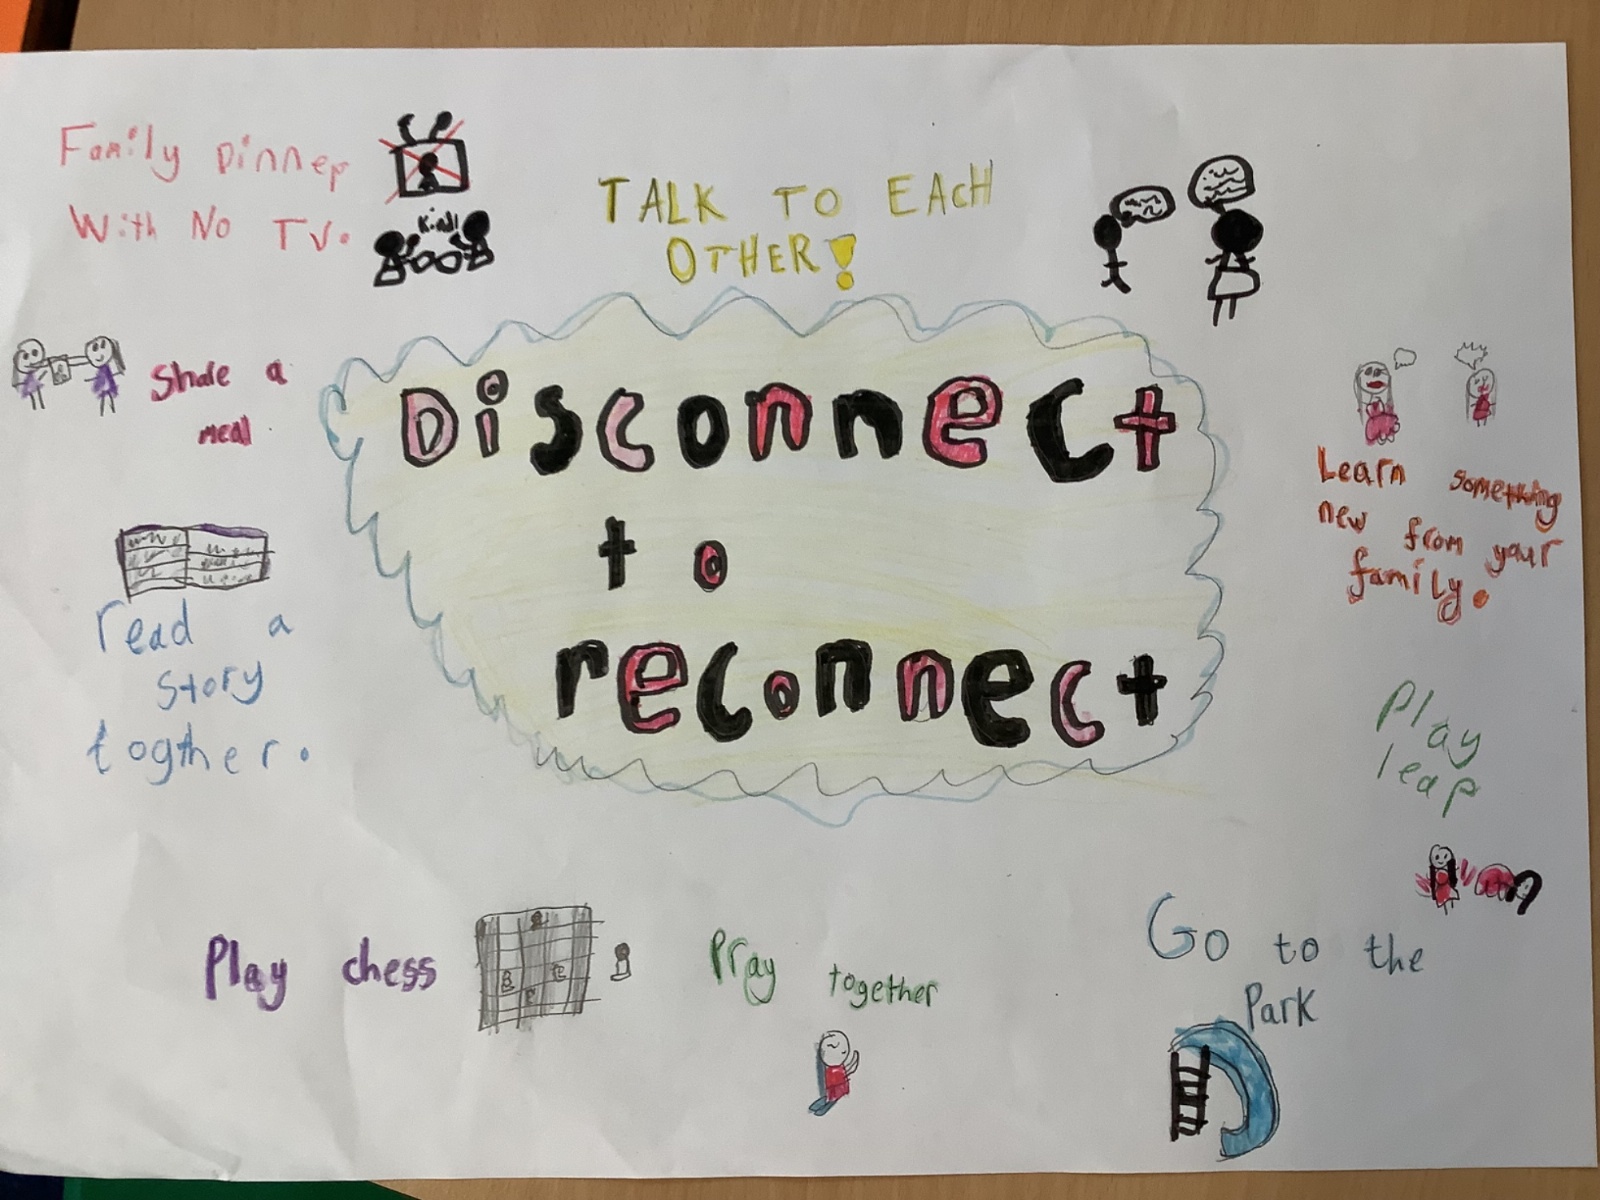 Family Dinner
With No TV.
TALK TO EACH
OTHER!
Share a
meal
Disconnect
to
reconnect
Learn something
new from your
family.
read a
story
togther.
Play
leap
Play chess
Pray together
Go to the
Park